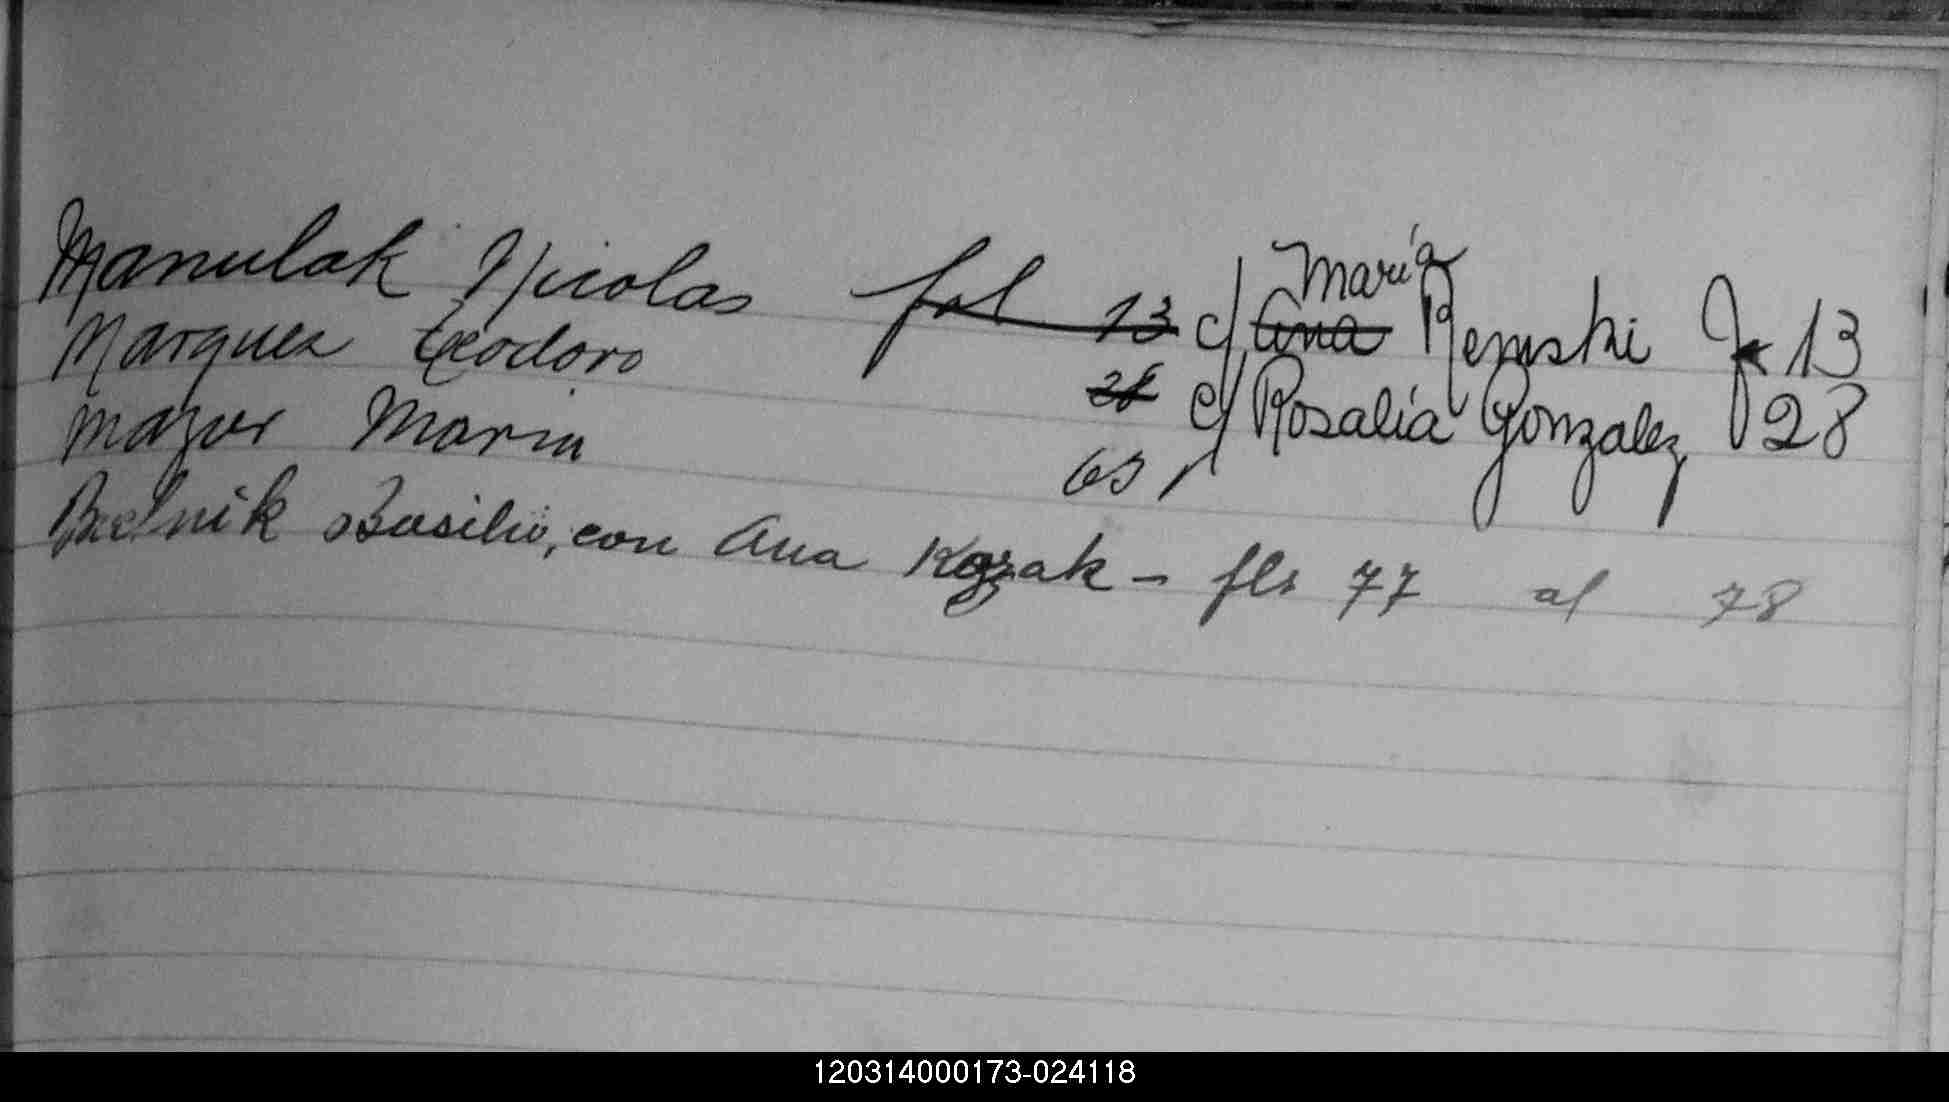 Manulak Nicolas fol 13 c/ Ana María Remski F 13
Marquez Teodoro 28 c/ Rosalía Gonzalez F 28
Mazur Maria 63
Basilio, con Ana Kozak - fls 77 al 78
120314000173-024118